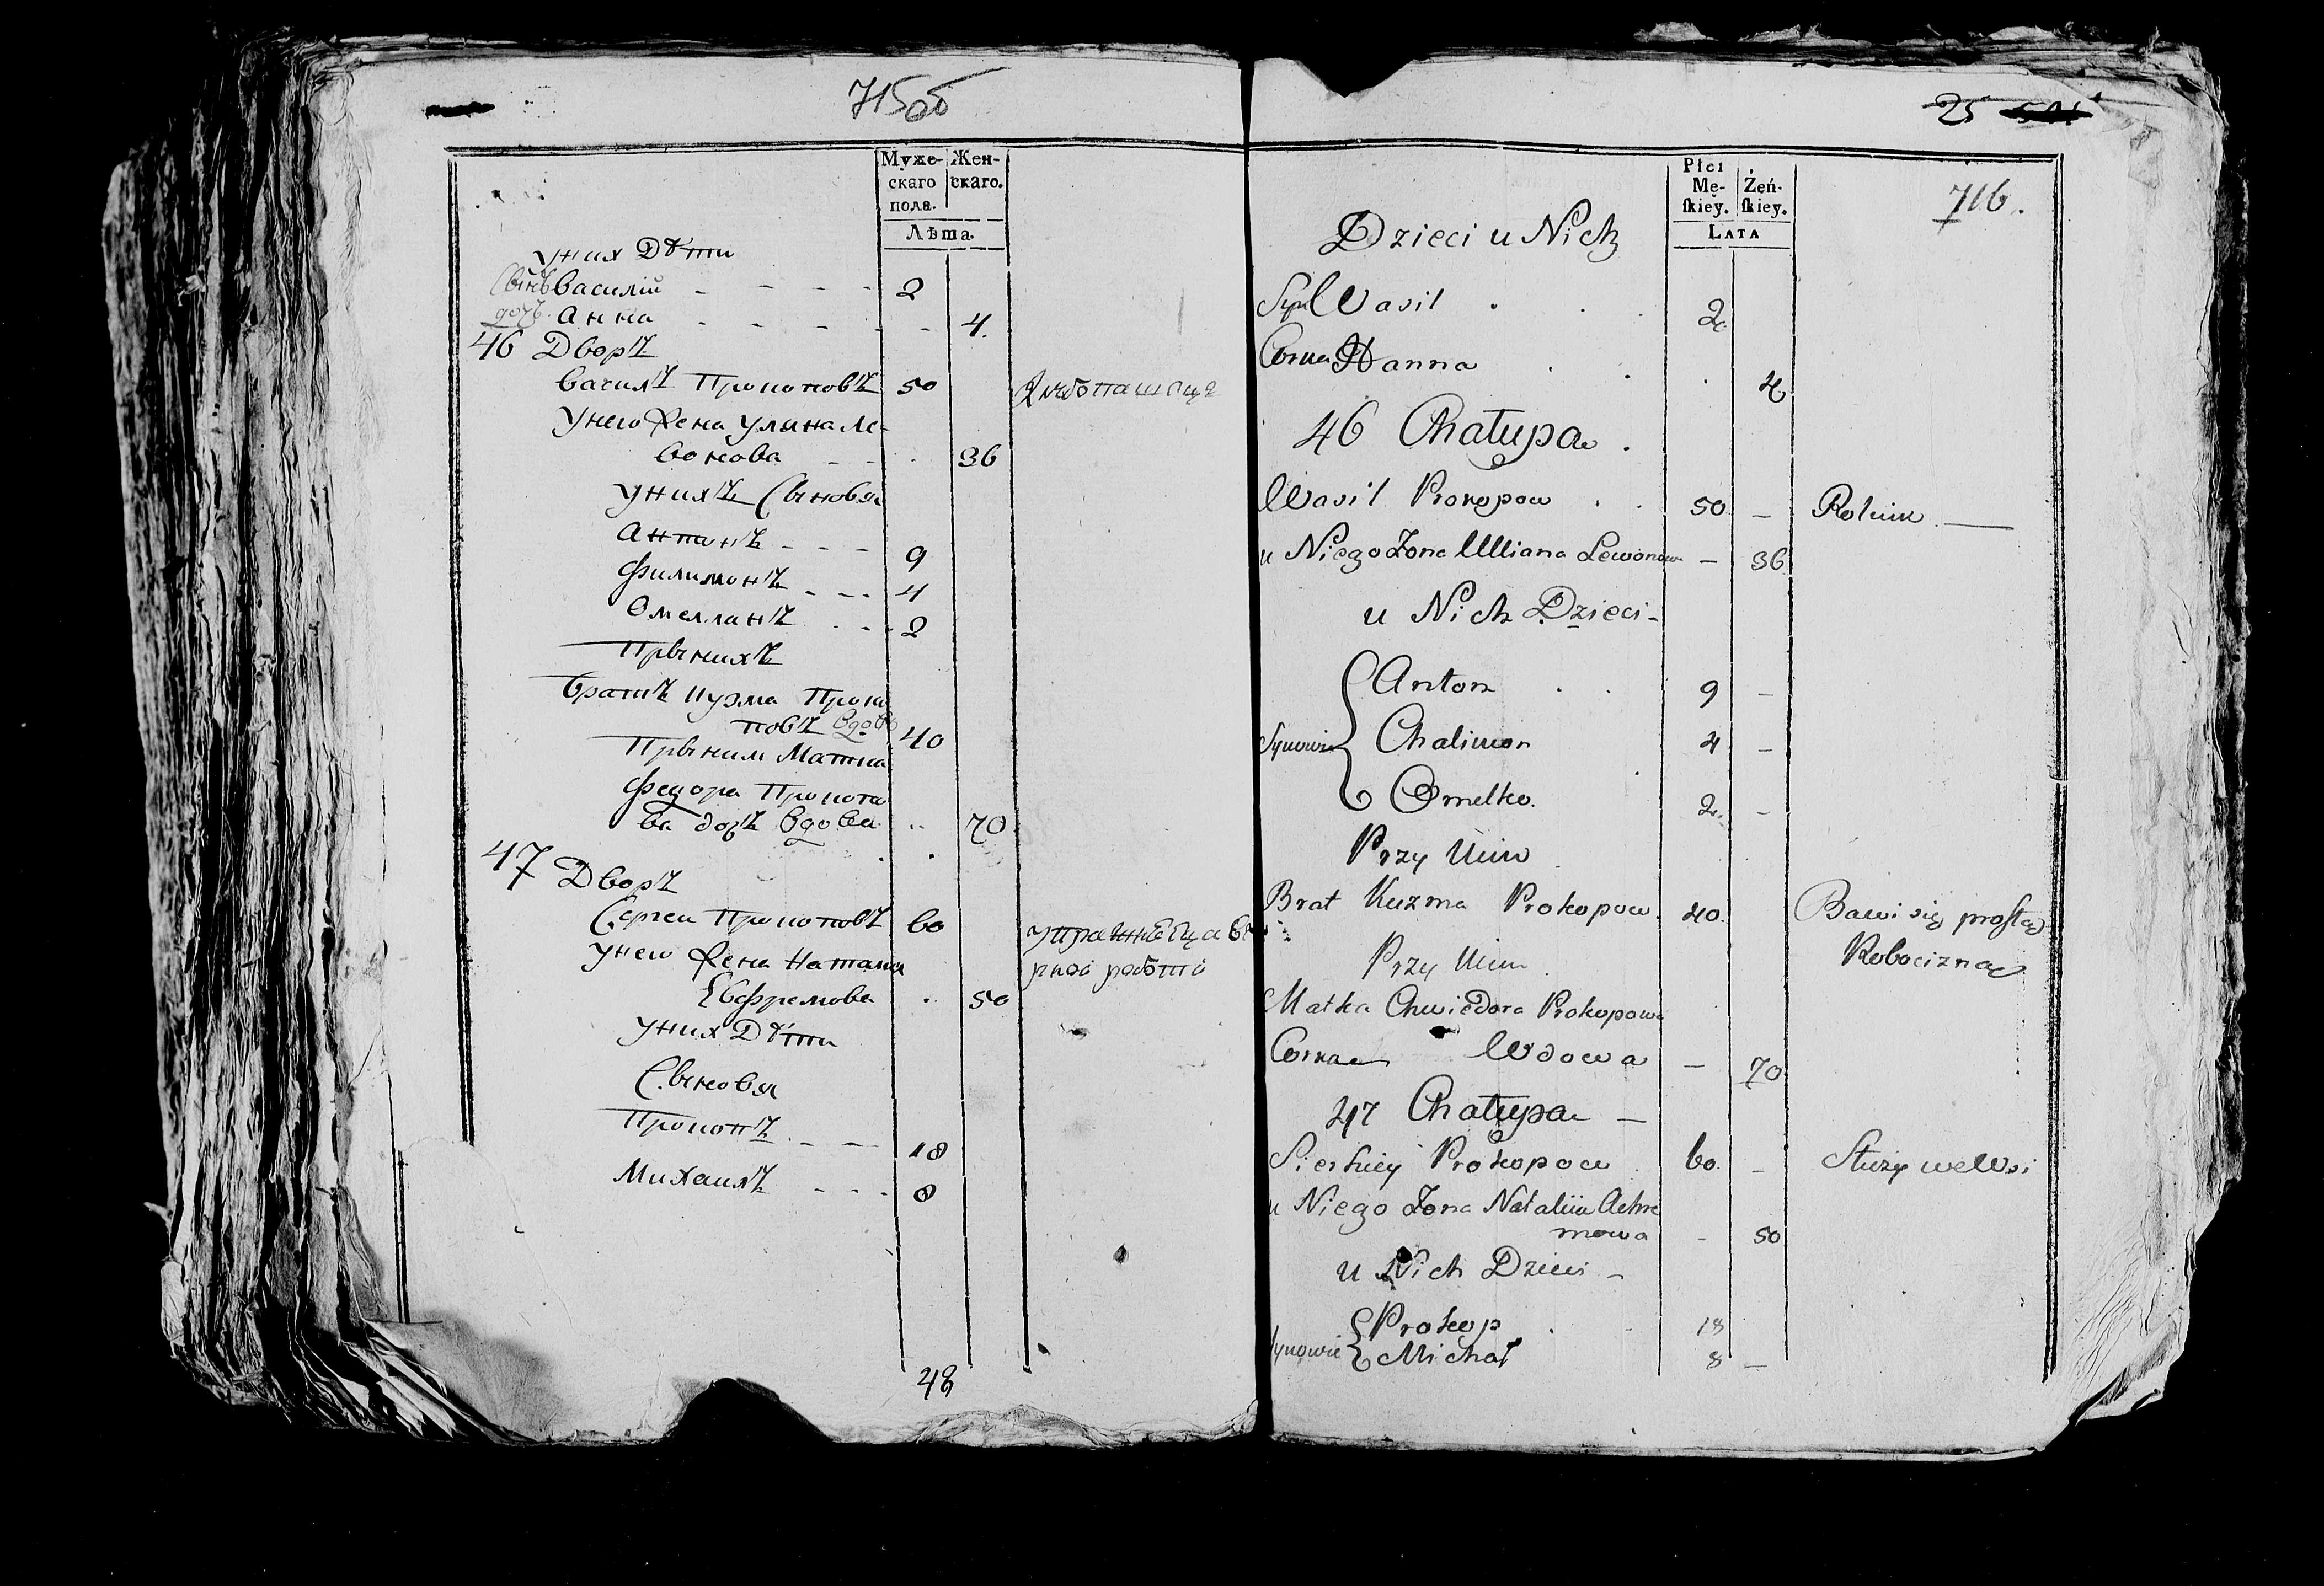 715об
Муже- Жен-
скаго скаго.
пола.
Лѣта.
у них Дѣти
Сынъ Василій 2
дочь. Анна 4.
46 Дворъ
Васил Прокоповъ 50 Хлебопашець
У него Жена Уляна Ле-
вонова 36
у нихъ Сыновя
Антонъ 9
Филимонъ 4
Омелланъ 2
Прынихъ
братъ Кузма Проко
повъ вдовъ 40
Прыним Матка
Федора Прокопо
ва доч вдова 70
47 Дворъ
Сергеи Прокоповъ 60
у него Жена Наталя
Евфремова 50
рной работи
у них Дѣти
Сыновя
Прокопъ 18
Михаилъ 8
48
25
716.
Płci
Mę- Żeń-
skiey. skiey.
LATA
Dzieci u Nich
Syn Wasil 2
Corka Hanna 4
46 Chałupa.
Wasil Prokopow 50 – Rolnik
u Niego Żona Ulliana Lewonowa – 36
u Nich Dzieci –
Anton 9 –
Synowie Chalimon 4 –
Omelko. 2 –
Przy Nim
Brat Kuzma Prokopow. 40. Bawi się prostą
Przy Nim Robocizną
Matka Chwiedora Prokopowa
Corka Wdowa – 70
47 Chałupa –
Sierhiey Prokopow 60. – Służy we Wsi
u Niego Żona Nataliia Achre
mowa – 50
u Nich Dzieci –
Prokop 18
Synowie Michał 8 –